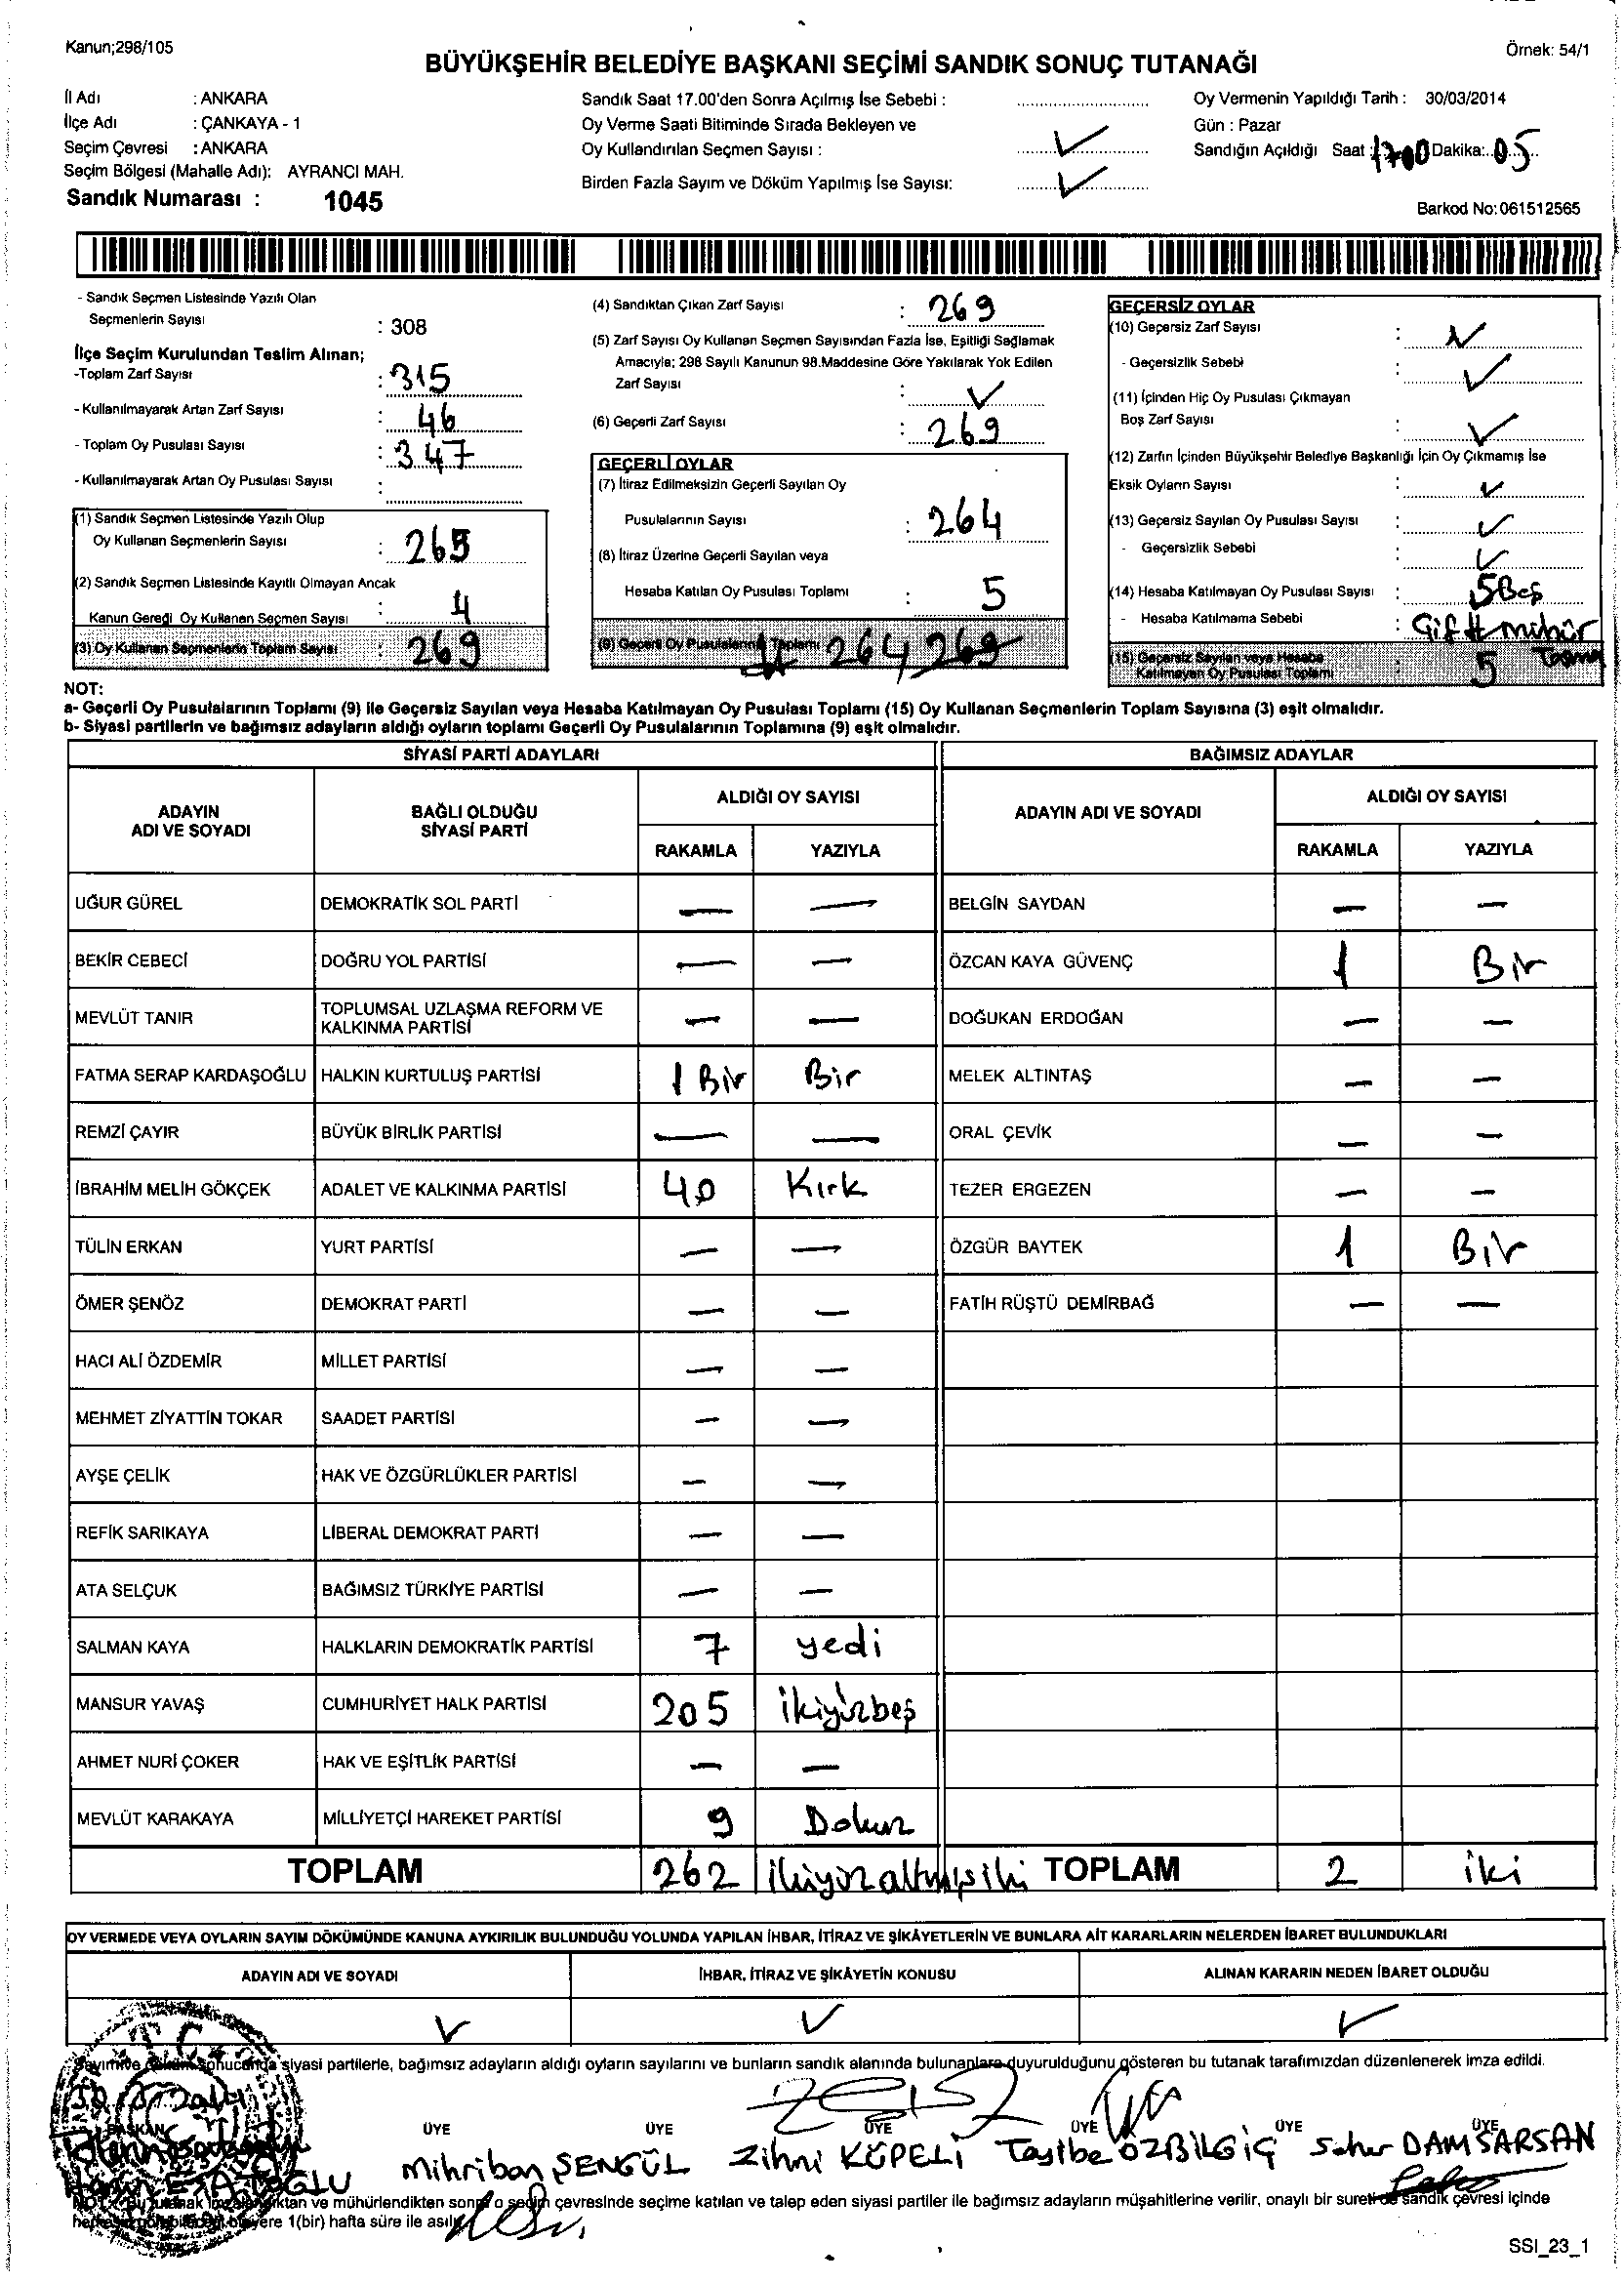 Kanun;298/105
Örnek: 54/1
BÜYÜKŞEHİR BELEDİYE BAŞKANI SEÇİMİ SANDIK SONUÇ TUTANAĞI
İl Adı : ANKARA
İlçe Adı : ÇANKAYA - 1
Seçim Çevresi : ANKARA
Seçim Bölgesi (Mahalle Adı): AYRANCI MAH.
Sandık Numarası : 1045
Sandık Saat 17.00'den Sonra Açılmış İse Sebebi :
Oy Verme Saati Bitiminde Sırada Bekleyen ve
Oy Kullandırılan Seçmen Sayısı :
Birden Fazla Sayım ve Döküm Yapılmış İse Sayısı:
Oy Vermenin Yapıldığı Tarih : 30/03/2014
Gün : Pazar
Sandığın Açıldığı Saat : 1700 Dakika: 05
Barkod No:061512565
- Sandık Seçmen Listesinde Yazılı Olan
Seçmenlerin Sayısı : 308
İlçe Seçim Kurulundan Teslim Alınan;
-Toplam Zarf Sayısı : 315
- Kullanılmayarak Artan Zarf Sayısı : 46
- Toplam Oy Pusulası Sayısı : 347
- Kullanılmayarak Artan Oy Pusulası Sayısı :
(1) Sandık Seçmen Listesinde Yazılı Olup
Oy Kullanan Seçmenlerin Sayısı : 265
(2) Sandık Seçmen Listesinde Kayıtlı Olmayan Ancak
Kanun Gereği Oy Kullanan Seçmen Sayısı : 4
(3) Oy Kullanan Seçmenlerin Toplam Sayısı : 269
(4) Sandıktan Çıkan Zarf Sayısı : 269
(5) Zarf Sayısı Oy Kullanan Seçmen Sayısından Fazla İse, Eşitliği Sağlamak
Amacıyla; 298 Sayılı Kanunun 98.Maddesine Göre Yakılarak Yok Edilen
Zarf Sayısı :
(6) Geçerli Zarf Sayısı : 269
GEÇERLİ OYLAR
(7) İtiraz Edilmeksizin Geçerli Sayılan Oy
Pusulalarının Sayısı : 264
(8) İtiraz Üzerine Geçerli Sayılan veya
Hesaba Katılan Oy Pusulası Toplamı : 5
(9) Geçerli Oy Pusulalarının Toplamı 264 269
GEÇERSİZ OYLAR
(10) Geçersiz Zarf Sayısı :
- Geçersizlik Sebebi :
(11) İçinden Hiç Oy Pusulası Çıkmayan
Boş Zarf Sayısı :
(12) Zarfın İçinden Büyükşehir Belediye Başkanlığı İçin Oy Çıkmamış İse
Eksik Oyların Sayısı :
(13) Geçersiz Sayılan Oy Pusulası Sayısı :
- Geçersizlik Sebebi :
(14) Hesaba Katılmayan Oy Pusulası Sayısı : 5 Beş
- Hesaba Katılmama Sebebi : Çift mühür
(15) Geçersiz Sayılan veya Hesaba
Katılmayan Oy Pusulası Toplamı : 5
NOT:
a- Geçerli Oy Pusulalarının Toplamı (9) ile Geçersiz Sayılan veya Hesaba Katılmayan Oy Pusulası Toplamı (15) Oy Kullanan Seçmenlerin Toplam Sayısına (3) eşit olmalıdır.
b- Siyasi partilerin ve bağımsız adayların aldığı oyların toplamı Geçerli Oy Pusulalarının Toplamına (9) eşit olmalıdır.
SİYASİ PARTİ ADAYLARI
BAĞIMSIZ ADAYLAR
ADAYIN ADI VE SOYADI
BAĞLI OLDUĞU SİYASİ PARTİ
ALDIĞI OY SAYISI
RAKAMLA YAZIYLA
ADAYIN ADI VE SOYADI
ALDIĞI OY SAYISI
RAKAMLA YAZIYLA
UĞUR GÜREL DEMOKRATİK SOL PARTİ — — BELGİN SAYDAN — —
BEKİR CEBECİ DOĞRU YOL PARTİSİ — — ÖZCAN KAYA GÜVENÇ 1 Bir
MEVLÜT TANIR TOPLUMSAL UZLAŞMA REFORM VE KALKINMA PARTİSİ — — DOĞUKAN ERDOĞAN — —
FATMA SERAP KARDAŞOĞLU HALKIN KURTULUŞ PARTİSİ 1 Bir Bir MELEK ALTINTAŞ — —
REMZİ ÇAYIR BÜYÜK BİRLİK PARTİSİ — — ORAL ÇEVİK — —
İBRAHİM MELİH GÖKÇEK ADALET VE KALKINMA PARTİSİ 40 Kırk TEZER ERGEZEN — —
TÜLİN ERKAN YURT PARTİSİ — — ÖZGÜR BAYTEK 1 Bir
ÖMER ŞENÖZ DEMOKRAT PARTİ — — FATİH RÜŞTÜ DEMİRBAĞ — —
HACI ALİ ÖZDEMİR MİLLET PARTİSİ — —
MEHMET ZİYATTİN TOKAR SAADET PARTİSİ — —
AYŞE ÇELİK HAK VE ÖZGÜRLÜKLER PARTİSİ — —
REFİK SARIKAYA LİBERAL DEMOKRAT PARTİ — —
ATA SELÇUK BAĞIMSIZ TÜRKİYE PARTİSİ — —
SALMAN KAYA HALKLARIN DEMOKRATİK PARTİSİ 7 yedi
MANSUR YAVAŞ CUMHURİYET HALK PARTİSİ 205 ikiyüzbeş
AHMET NURİ ÇOKER HAK VE EŞİTLİK PARTİSİ — —
MEVLÜT KARAKAYA MİLLİYETÇİ HAREKET PARTİSİ 9 Dokuz
TOPLAM 262 ikiyüzaltmışiki TOPLAM 2 iki
OY VERMEDE VEYA OYLARIN SAYIM DÖKÜMÜNDE KANUNA AYKIRILIK BULUNDUĞU YOLUNDA YAPILAN İHBAR, İTİRAZ VE ŞİKÂYETLERİN VE BUNLARA AİT KARARLARIN NELERDEN İBARET BULUNDUKLARI
ADAYIN ADI VE SOYADI İHBAR, İTİRAZ VE ŞİKÂYETİN KONUSU ALINAN KARARIN NEDEN İBARET OLDUĞU
T.C.
siyasi partilerle, bağımsız adayların aldığı oyların sayılarını ve bunların sandık alanında bulunanlara duyurulduğunu gösteren bu tutanak tarafımızdan düzenlenerek imza edildi.
BAŞKAN ÜYE ÜYE ÜYE ÜYE ÜYE ÜYE
Mihriban ŞENGÜL Zihni KÜPELİ Tayibe ÖZBİLGİÇ Seher DAMSARSAN
NOT: Bu tutanak imzalandıktan ve mühürlendikten sonra o seçim çevresinde seçime katılan ve talep eden siyasi partiler ile bağımsız adayların müşahitlerine verilir, onaylı bir sureti de sandık çevresi içinde
yere 1(bir) hafta süre ile asılır.
SSI_23_1